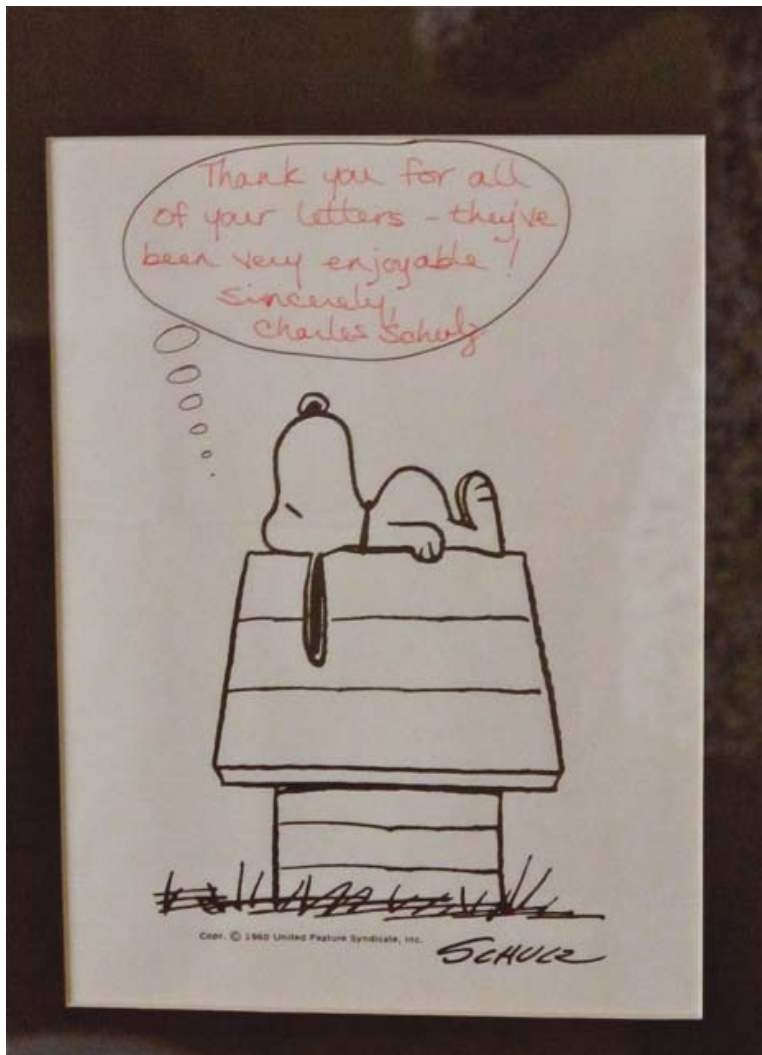 Thank you for all
of your letters - they've
been very enjoyable!
Sincerely,
Charles Schulz
Copr. © 1960 United Feature Syndicate, Inc.
SCHULZ